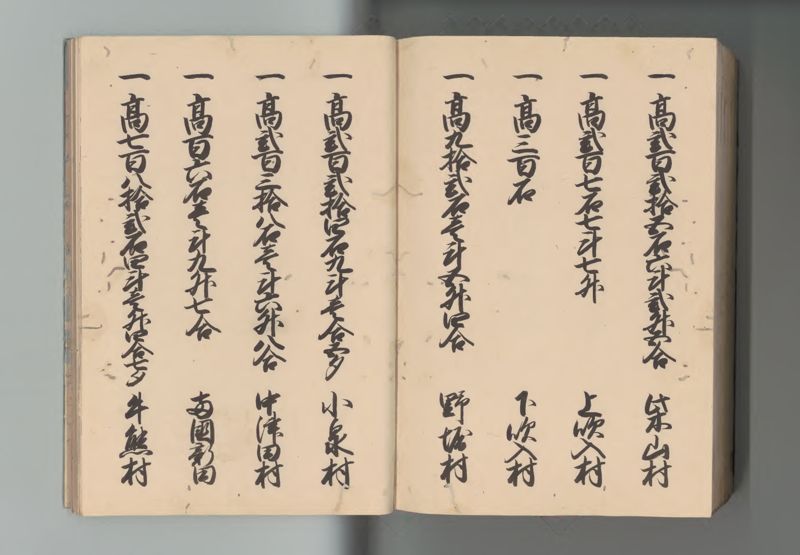 一 高弐百弐拾五石六斗弐升五合 柴山村
一 高弐百七石七斗七升 上吹入村
一 高三百石 下吹入村
一 高九拾弐石壱斗五升四合 野堀村
一 高弐百弐拾四石九斗壱合五夕 小泉村
一 高弐百三拾八石壱斗六升八合 中津田村
一 高百六石壱斗九升七合 両國新田
一 高七百八拾弐石四斗壱升四合七夕 牛熊村